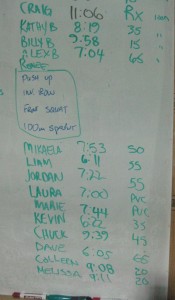 CRAIG 11:06 RX
KATHI B 8:19 35 "
BILLY B 9:58 15 "
ALEX B 7:04 65 "
PUSH UP
INV. ROW
100m SPRINT
MIKAELA 7:53 50
LIAM 6:11 55
JORDAN 7:22 55
LAURA 7:00 PVC
MARIE 7:44 PVC
KEVIN 6:22 35
CHUCK 9:39 45
DAVE 6:05 65
COLLEEN 9:08 20
MELISSA 9:11 20